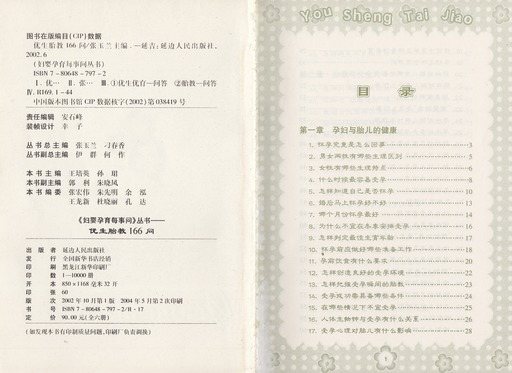 图书在版编目(CIP)数据
优生胎教166问/张玉兰主编.—延吉:延边人民出版社,
2002.6
(妇婴孕育每事问丛书)
ISBN 7-80648-797-2
Ⅰ.优… Ⅱ.张… Ⅲ.①优生优育—问答 ②胎教—问答
Ⅳ.R169.1-44
中国版本图书馆CIP数据核字(2002)第038419号
责任编辑 安石峰
装帧设计 丰子
丛书总主编 张玉兰 刁春香
丛书副总主编 伊群 何作
本书主编 王培英 孙珺
本书副主编 郭利 朱晓凤
本书编委 张宏伟 朱先明 余泓
王龙新 杜晓丽 孔达
《妇婴孕育每事问》丛书——
优生胎教166问
出版者 延边人民出版社
发行 全国新华书店经销
印刷 黑龙江新华印刷厂
印数 1-10000册
开本 850×1168毫米32开
印张 60
版次 2002年10月第1版 2004年5月第2次印刷
书号 ISBN 7-80648-797-2/R·17
定价 90.00元(全六册)
(如发现本书有印制质量问题,印刷厂负责调换)
You Sheng Tai Jiao
目录
第一章 孕妇与胎儿的健康
1. 怀孕究竟是怎么回事 3
2. 男女两性有哪些生理区别 5
3. 女性有哪些生理特点 6
4. 什么时候最容易受孕 7
5. 怎样知道自己是否怀孕 10
6. 婚后马上怀孕好不好 13
7. 哪个月份怀孕最好 14
8. 为什么不宜在冬季受孕 15
9. 怎样判定最佳生育年龄 16
10. 怀孕前应做好哪些准备工作 18
11. 孕前饮食有什么要求 20
12. 怎样创造良好的受孕环境 21
13. 怎样把握受孕瞬间的胎教 22
14. 受孕成功需具备哪些条件 24
15. 在哪些情况下不宜受孕 25
16. 人体生物钟与受孕有什么关系 26
17. 受孕心理对胎儿有什么影响 28
1